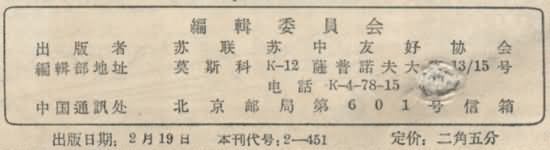 編輯委員会
出版者 苏联苏中友好协会
編輯部地址 莫斯科 K-12 薩普諾夫大 13/15号
电話 K-4-78-15
中国通訊处 北京邮局第601号信箱
出版日期：2月19日 本刊代号：2—451 定价：二角五分